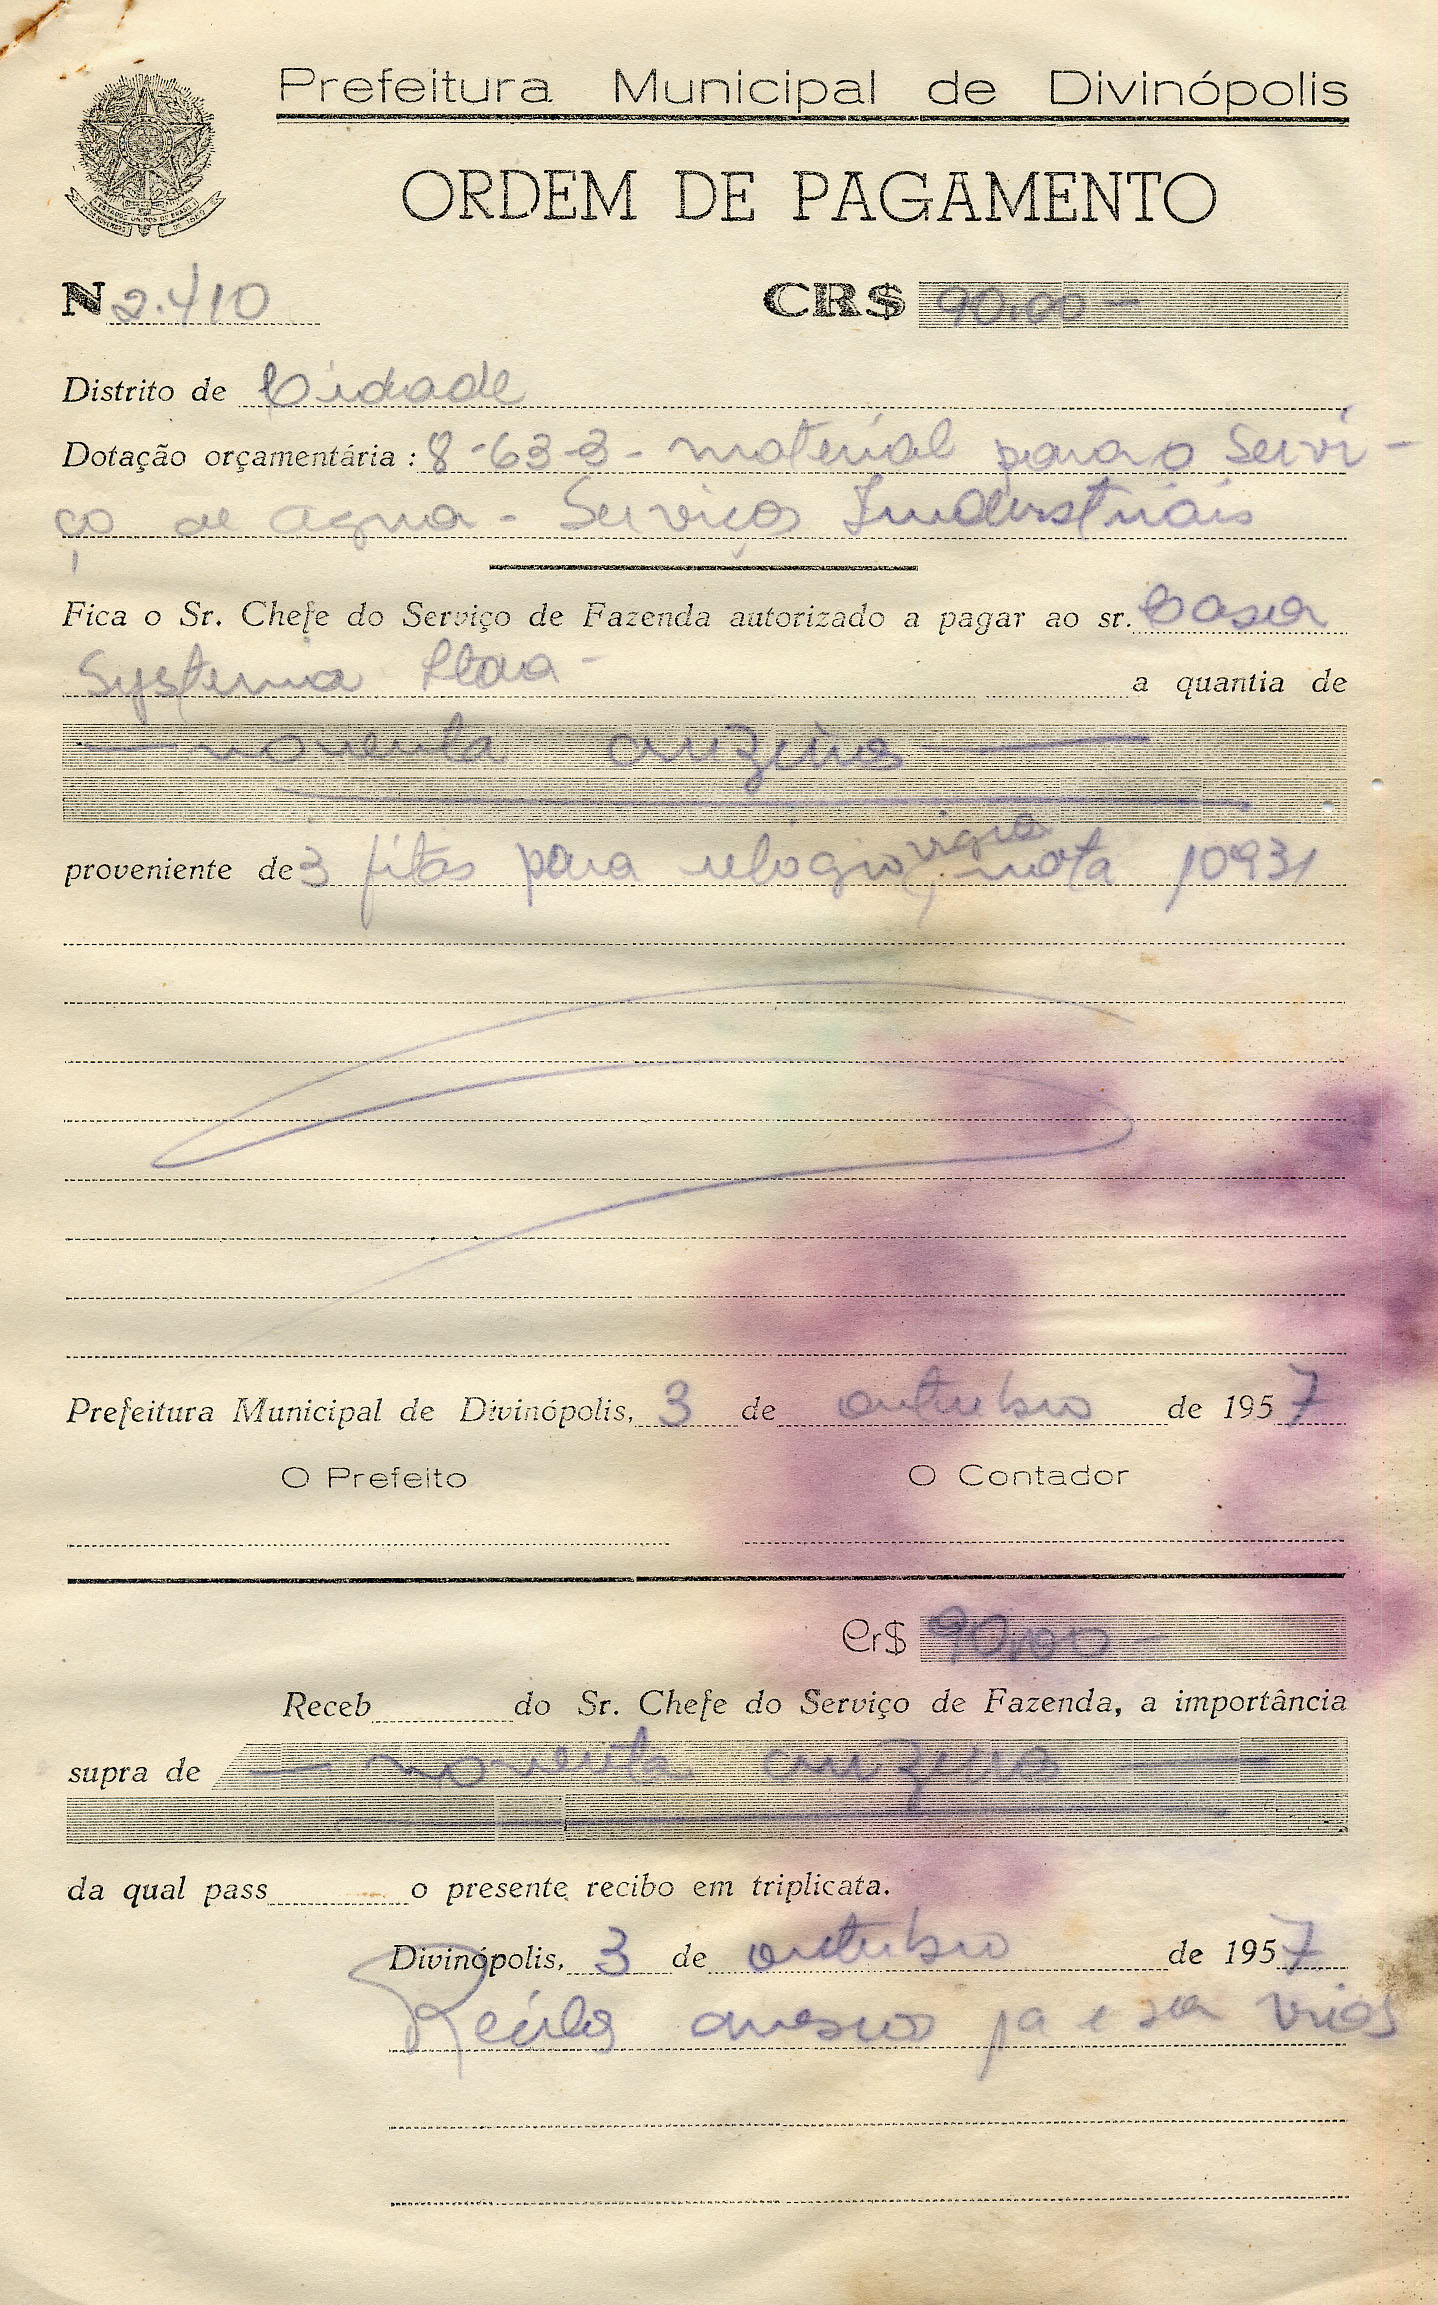 Prefeitura Municipal de Divinópolis
ORDEM DE PAGAMENTO
N 2.410 CR$ 90,00 -
Distrito de Cidade
Dotação orçamentária: 8-63-3 - material para o Servi-
ço de agua - Serviços Industriais
Fica o Sr. Chefe do Serviço de Fazenda autorizado a pagar ao sr. Casa
Systema Ltda - a quantia de
— noventa cruzeiros —
proveniente de 3 fitas para relogio vigia, nota 10931
Prefeitura Municipal de Divinópolis, 3 de outubro de 1957
O Prefeito O Contador
Cr$ 90,00 -
Receb do Sr. Chefe do Serviço de Fazenda, a importância
supra de — noventa cruzeiros —
da qual pass o presente recibo em triplicata.
Divinópolis, 3 de outubro de 1957
Recibo anexo vias